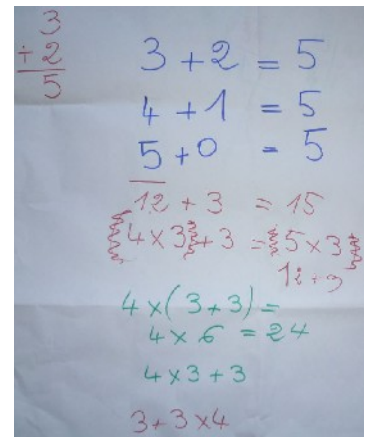 3
+ 2
5
3 + 2 = 5
4 + 1 = 5
5 + 0 = 5
12 + 3 = 15
{4 x 3} + 3 = {5 x 3}
12 + 3
4 x (3 + 3) =
4 x 6 = 24
4 x 3 + 3
3 + 3 x 4